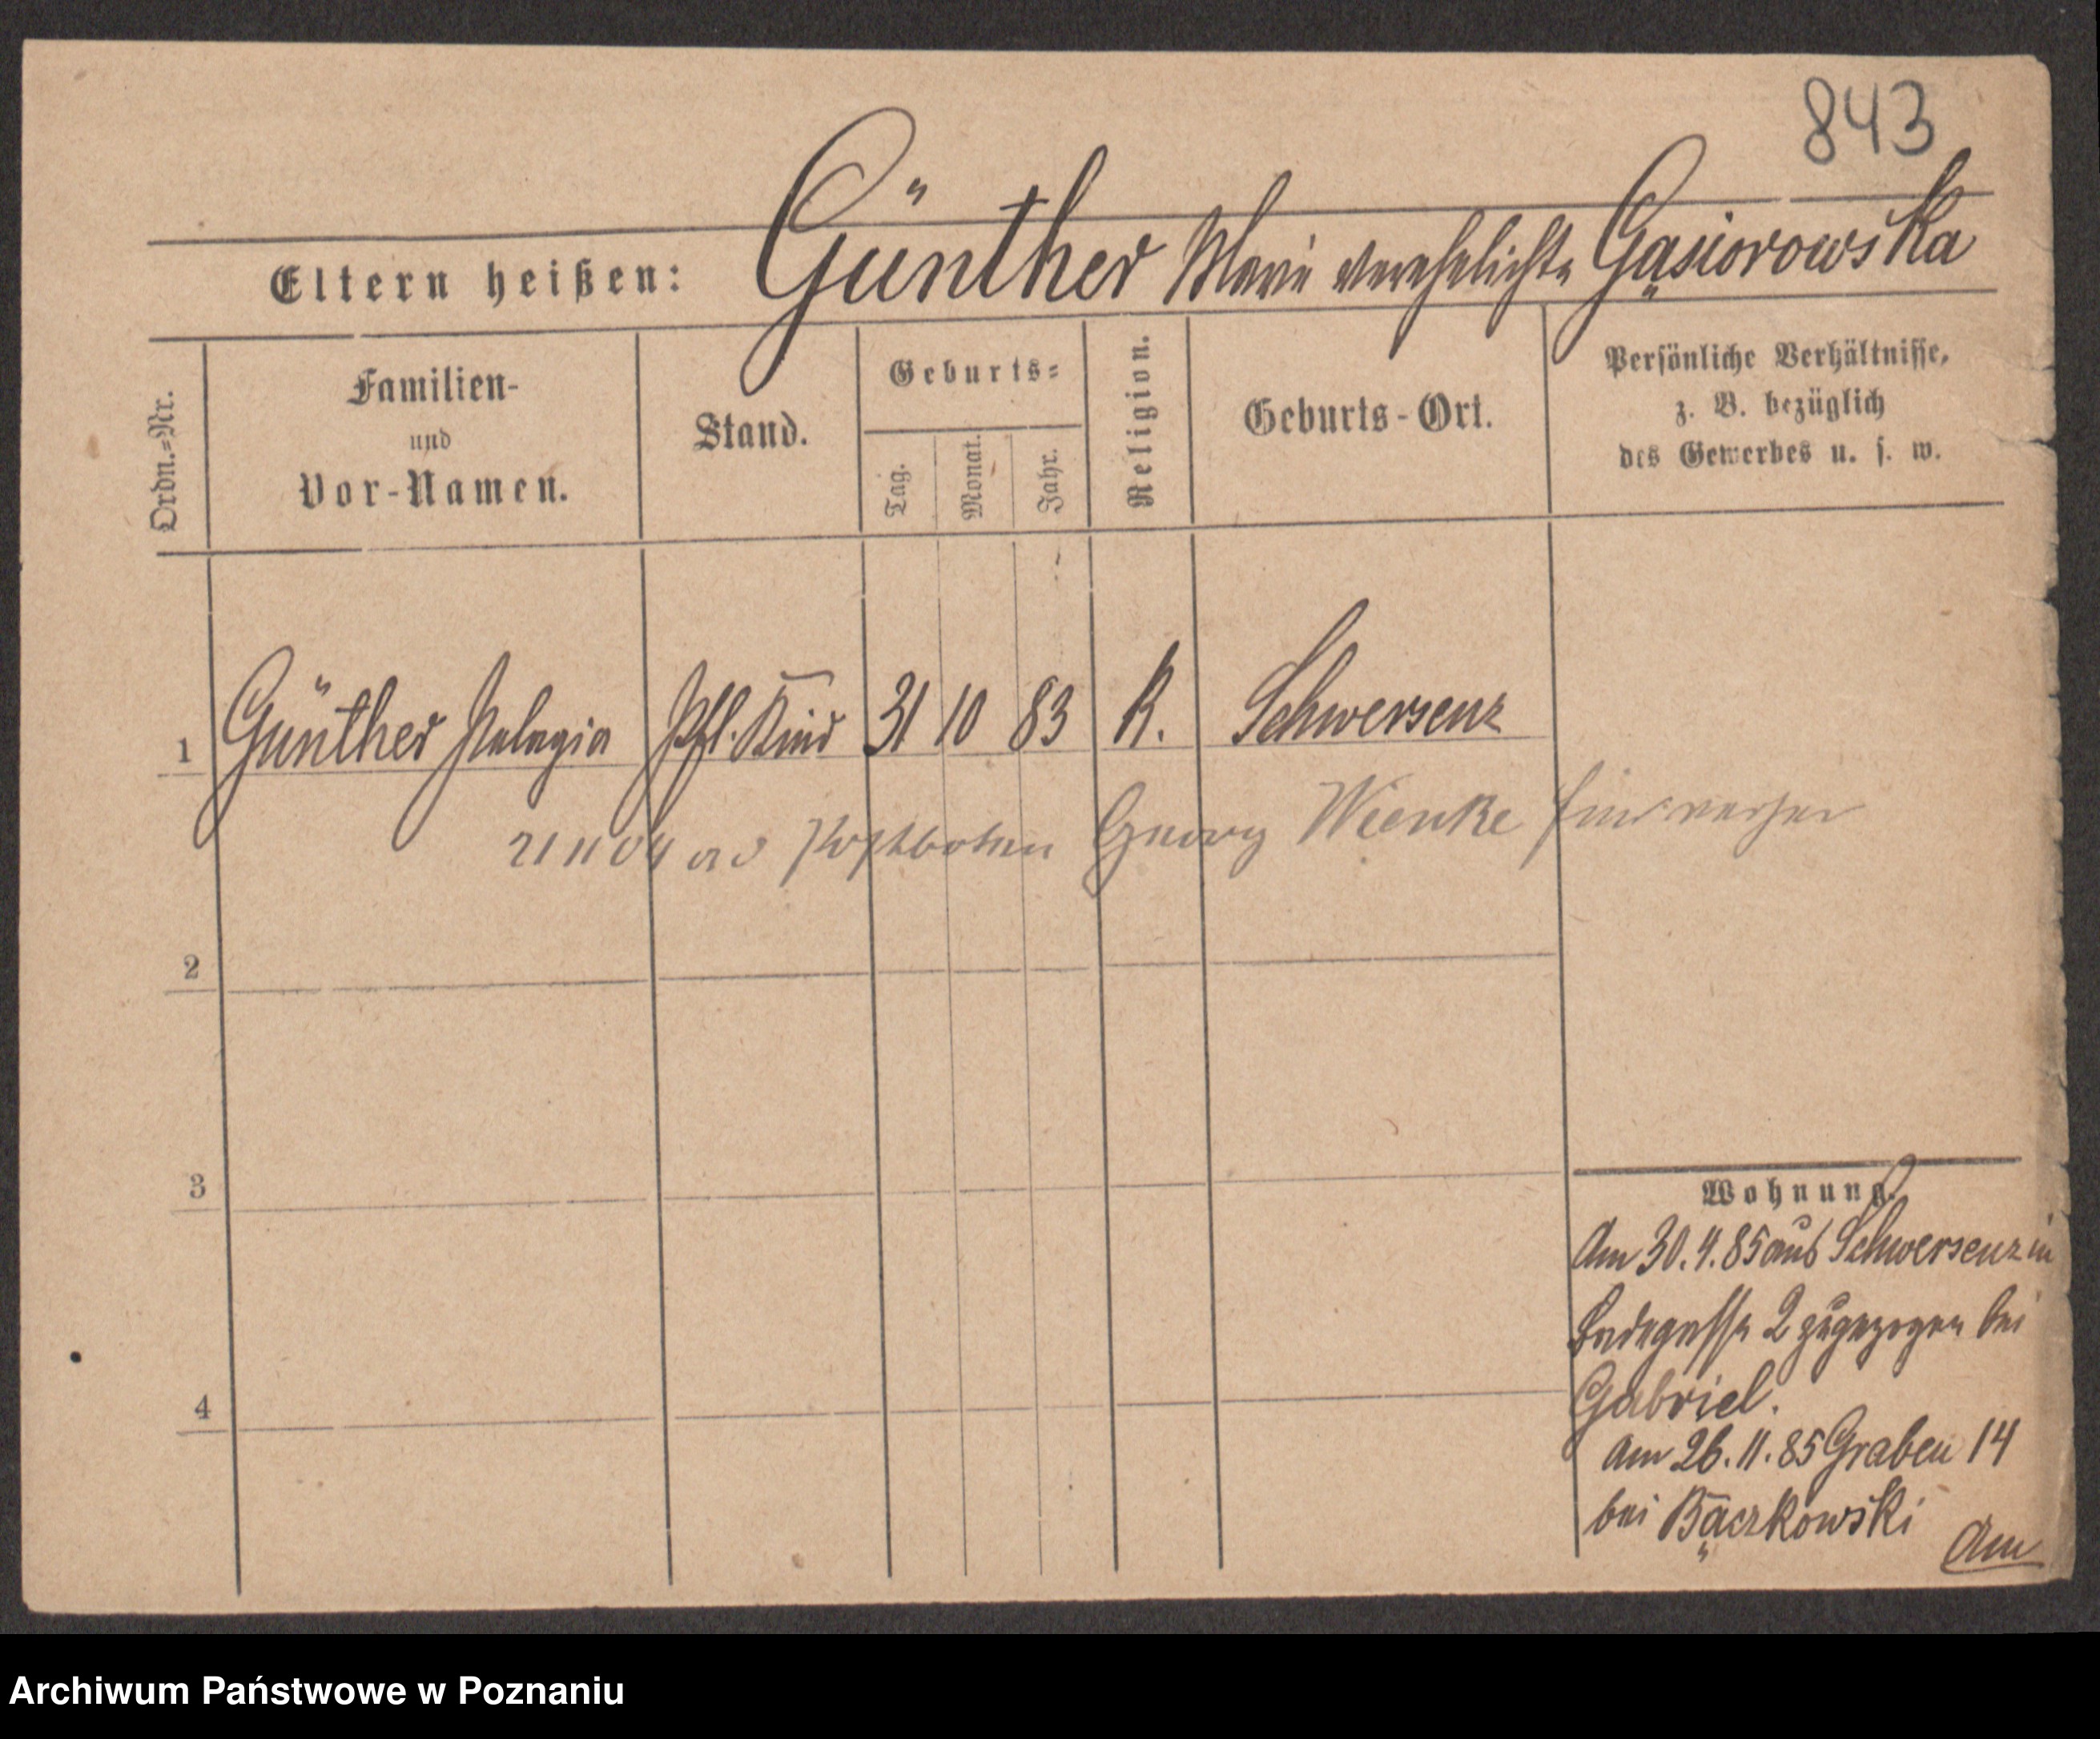 843
Eltern heißen: Günther Marie verehelichte Gąsiorowska
Ordn.=Nr.
Familien-
und
Vor-Namen.
Stand.
Geburts=
Tag.
Monat.
Jahr.
Religion.
Geburts-Ort.
Persönliche Verhältnisse,
z. B. bezüglich
des Gewerbes u. s. w.
1 Günther Pelagia Pfl. Kind 31 10 83 K. Schwersenz
21 11 04 Postboten Georg Wienke hier verh
2
3
4
Wohnung.
Am 30.4.85 aus Schwersenz in
2 zugezogen bei
Gabriel.
Am 26.11.85 Graben 14
bei Bączkowski
Am
Archiwum Państwowe w Poznaniu